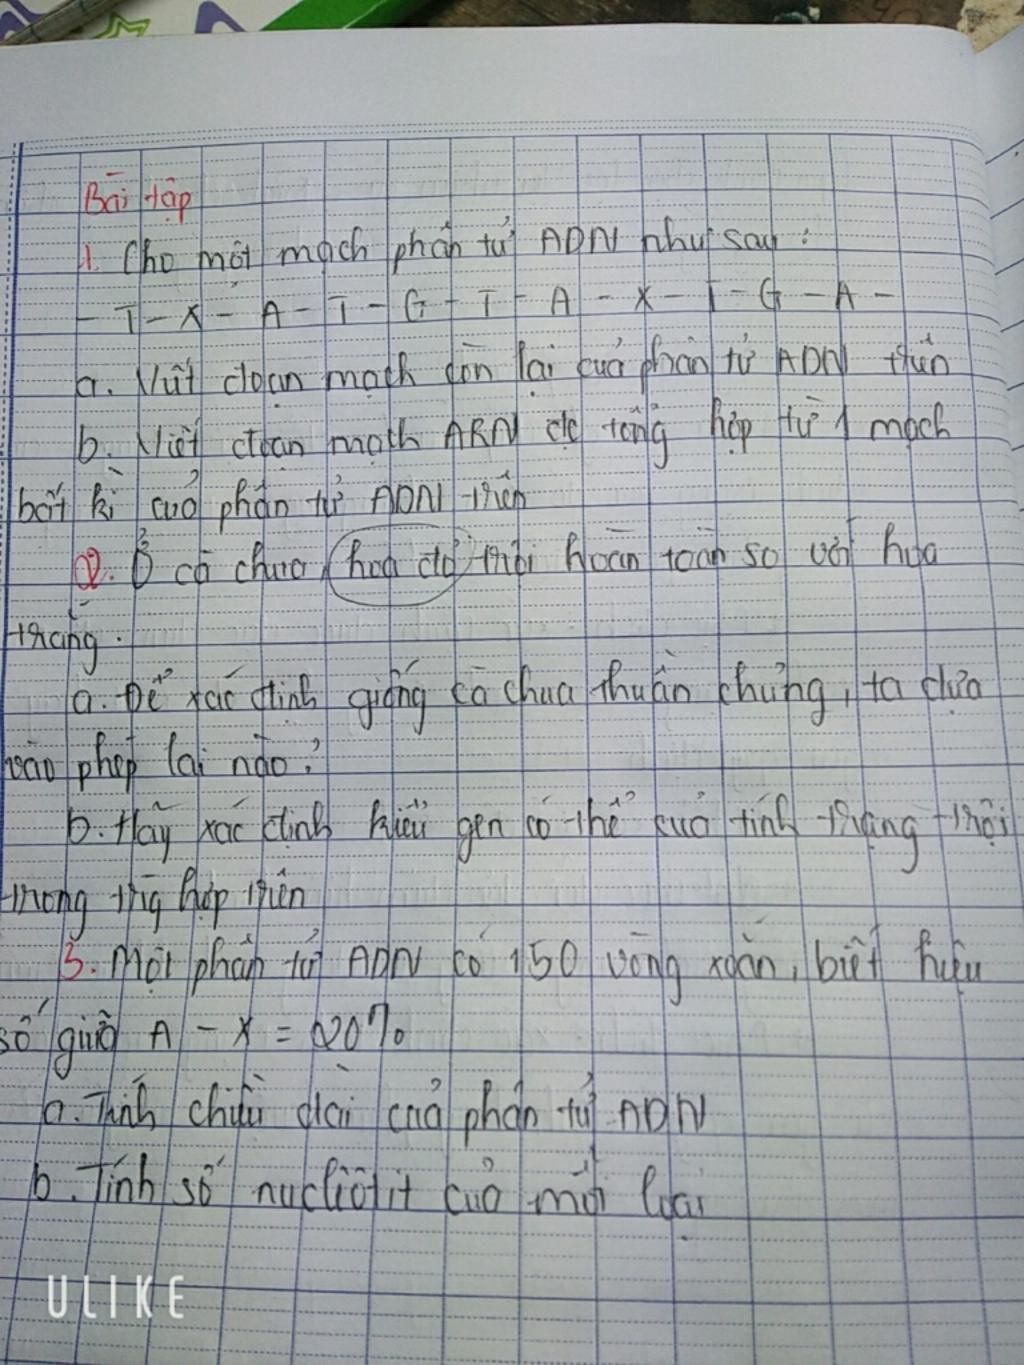 Bài tập
1. Cho một mạch phân tử ADN như sau :
- T - X - A - T - G - T - A - X - T - G - A -
a. Viết đoạn mạch còn lại của phân tử ADN trên
b. Viết đoạn mạch ARN đc tổng hợp từ 1 mạch
bất kì của phân tử ADN trên
2. Ở cà chua hoa đỏ trội hoàn toàn so với hoa
trắng.
a. Để xác định giống cà chua thuần chủng, ta dựa
vào phép lai nào?
b. Hãy xác định kiểu gen có thể của tính trạng trội
trong trg hợp trên
3. Một phân tử ADN có 150 vòng xoắn, biết hiệu
số giữa A - X = 20%
a. Tính chiều dài của phân tử ADN
b. Tính số nuclêôtit của mỗi loại
ULIKE